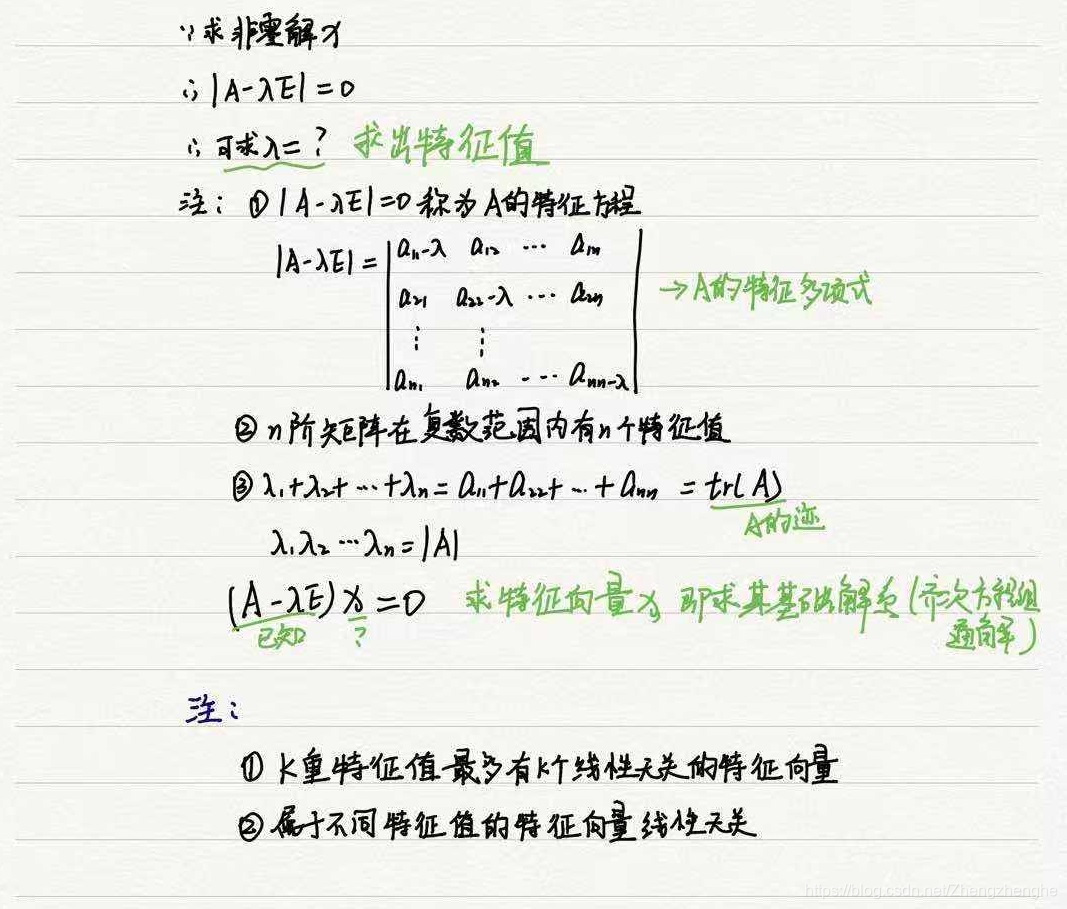 ∵求非零解x
∴|A-λE|=0
∴可求λ=? 求出特征值
注: ①|A-λE|=0称为A的特征方程
|A-λE|= a₁₁-λ a₁₂ … a₁ₙ
a₂₁ a₂₂-λ … a₂ₙ →A的特征多项式
⋮ ⋮
aₙ₁ aₙ₂ … aₙₙ-λ
②n阶矩阵在复数范围内有n个特征值
③λ₁+λ₂+…+λₙ=a₁₁+a₂₂+…+aₙₙ=tr(A)
A的迹
λ₁λ₂…λₙ=|A|
(A-λE)x=0 求特征向量x,即求其基础解系(齐次方程组
已知 ? 通解)
注:
①K重特征值最多有k个线性无关的特征向量
②属于不同特征值的特征向量线性无关
https://blog.csdn.net/Zhengzhenghe